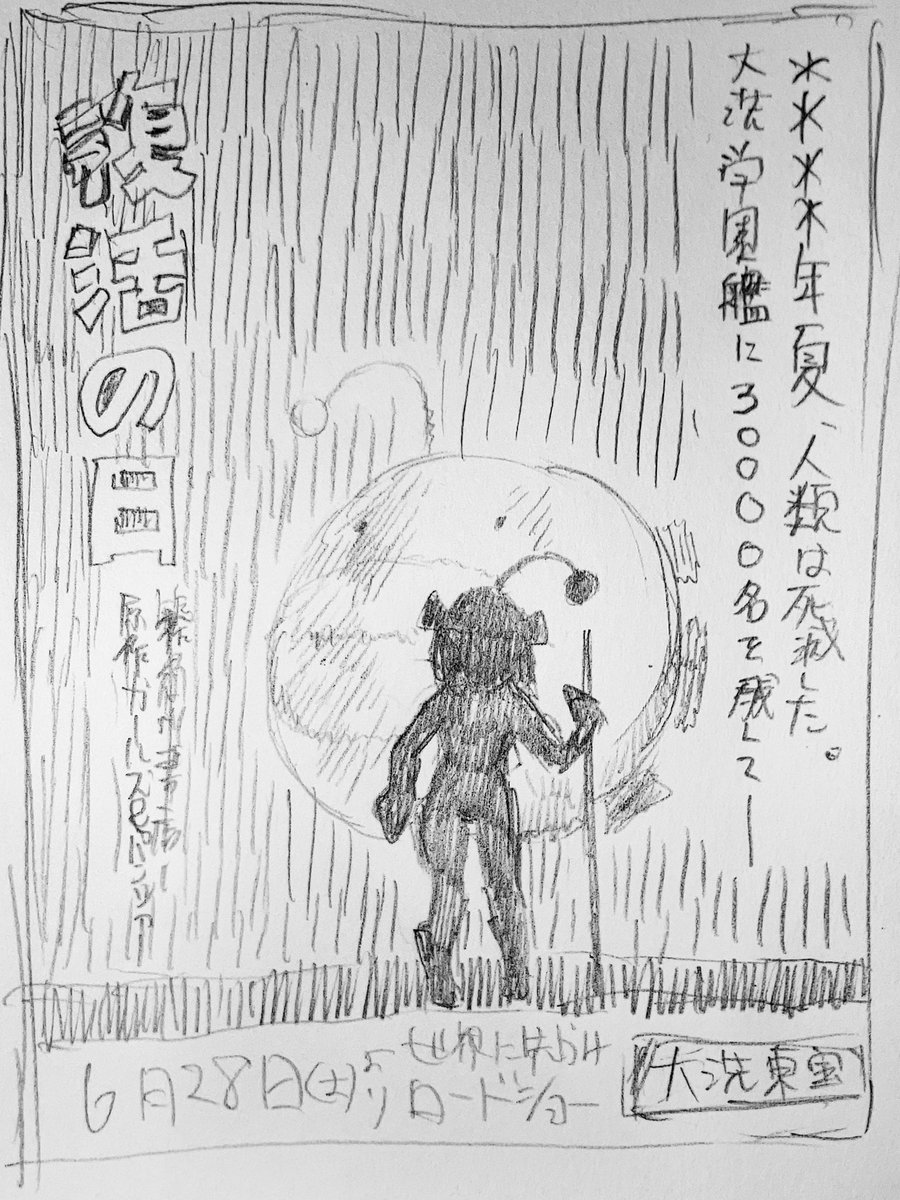 ＊＊＊＊年夏、人類は死滅した。
大洗学園艦に30000名を残して―
復活の日
原作 ガールズ&パンツァー
6月28日(土)より
世界に先がけ
ロードショー
大洗東宝